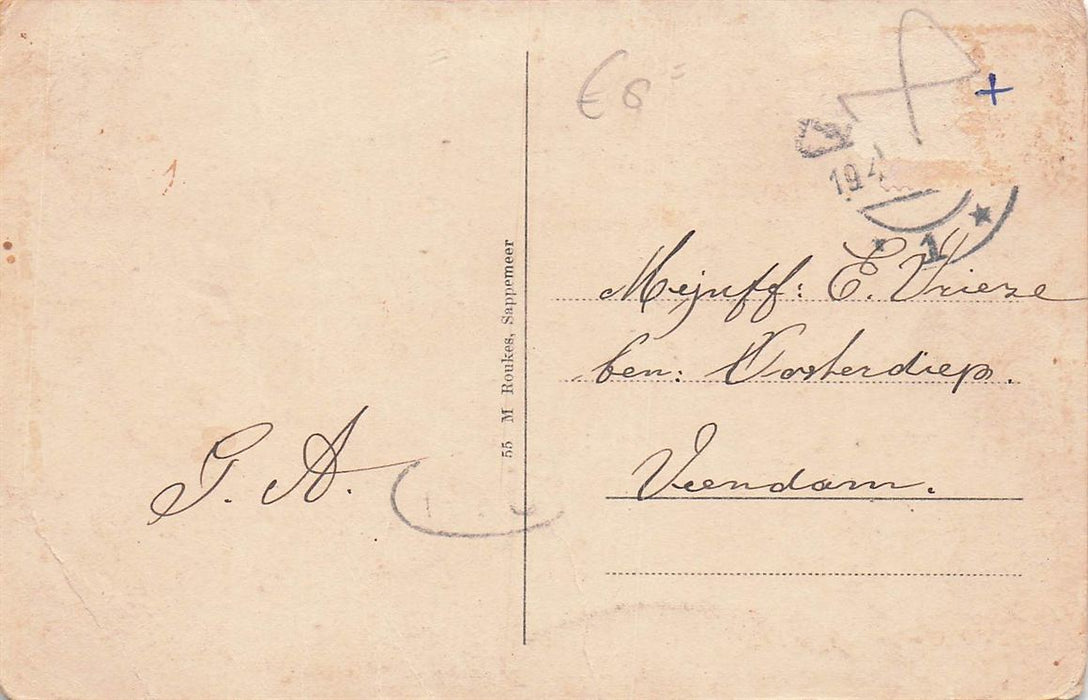 € 8 =
+
19.4
1
Mejuff: E. Vrieze
ben: Oosterdiep.
Veendam.
G. A.
55 M Roukes, Sappemeer